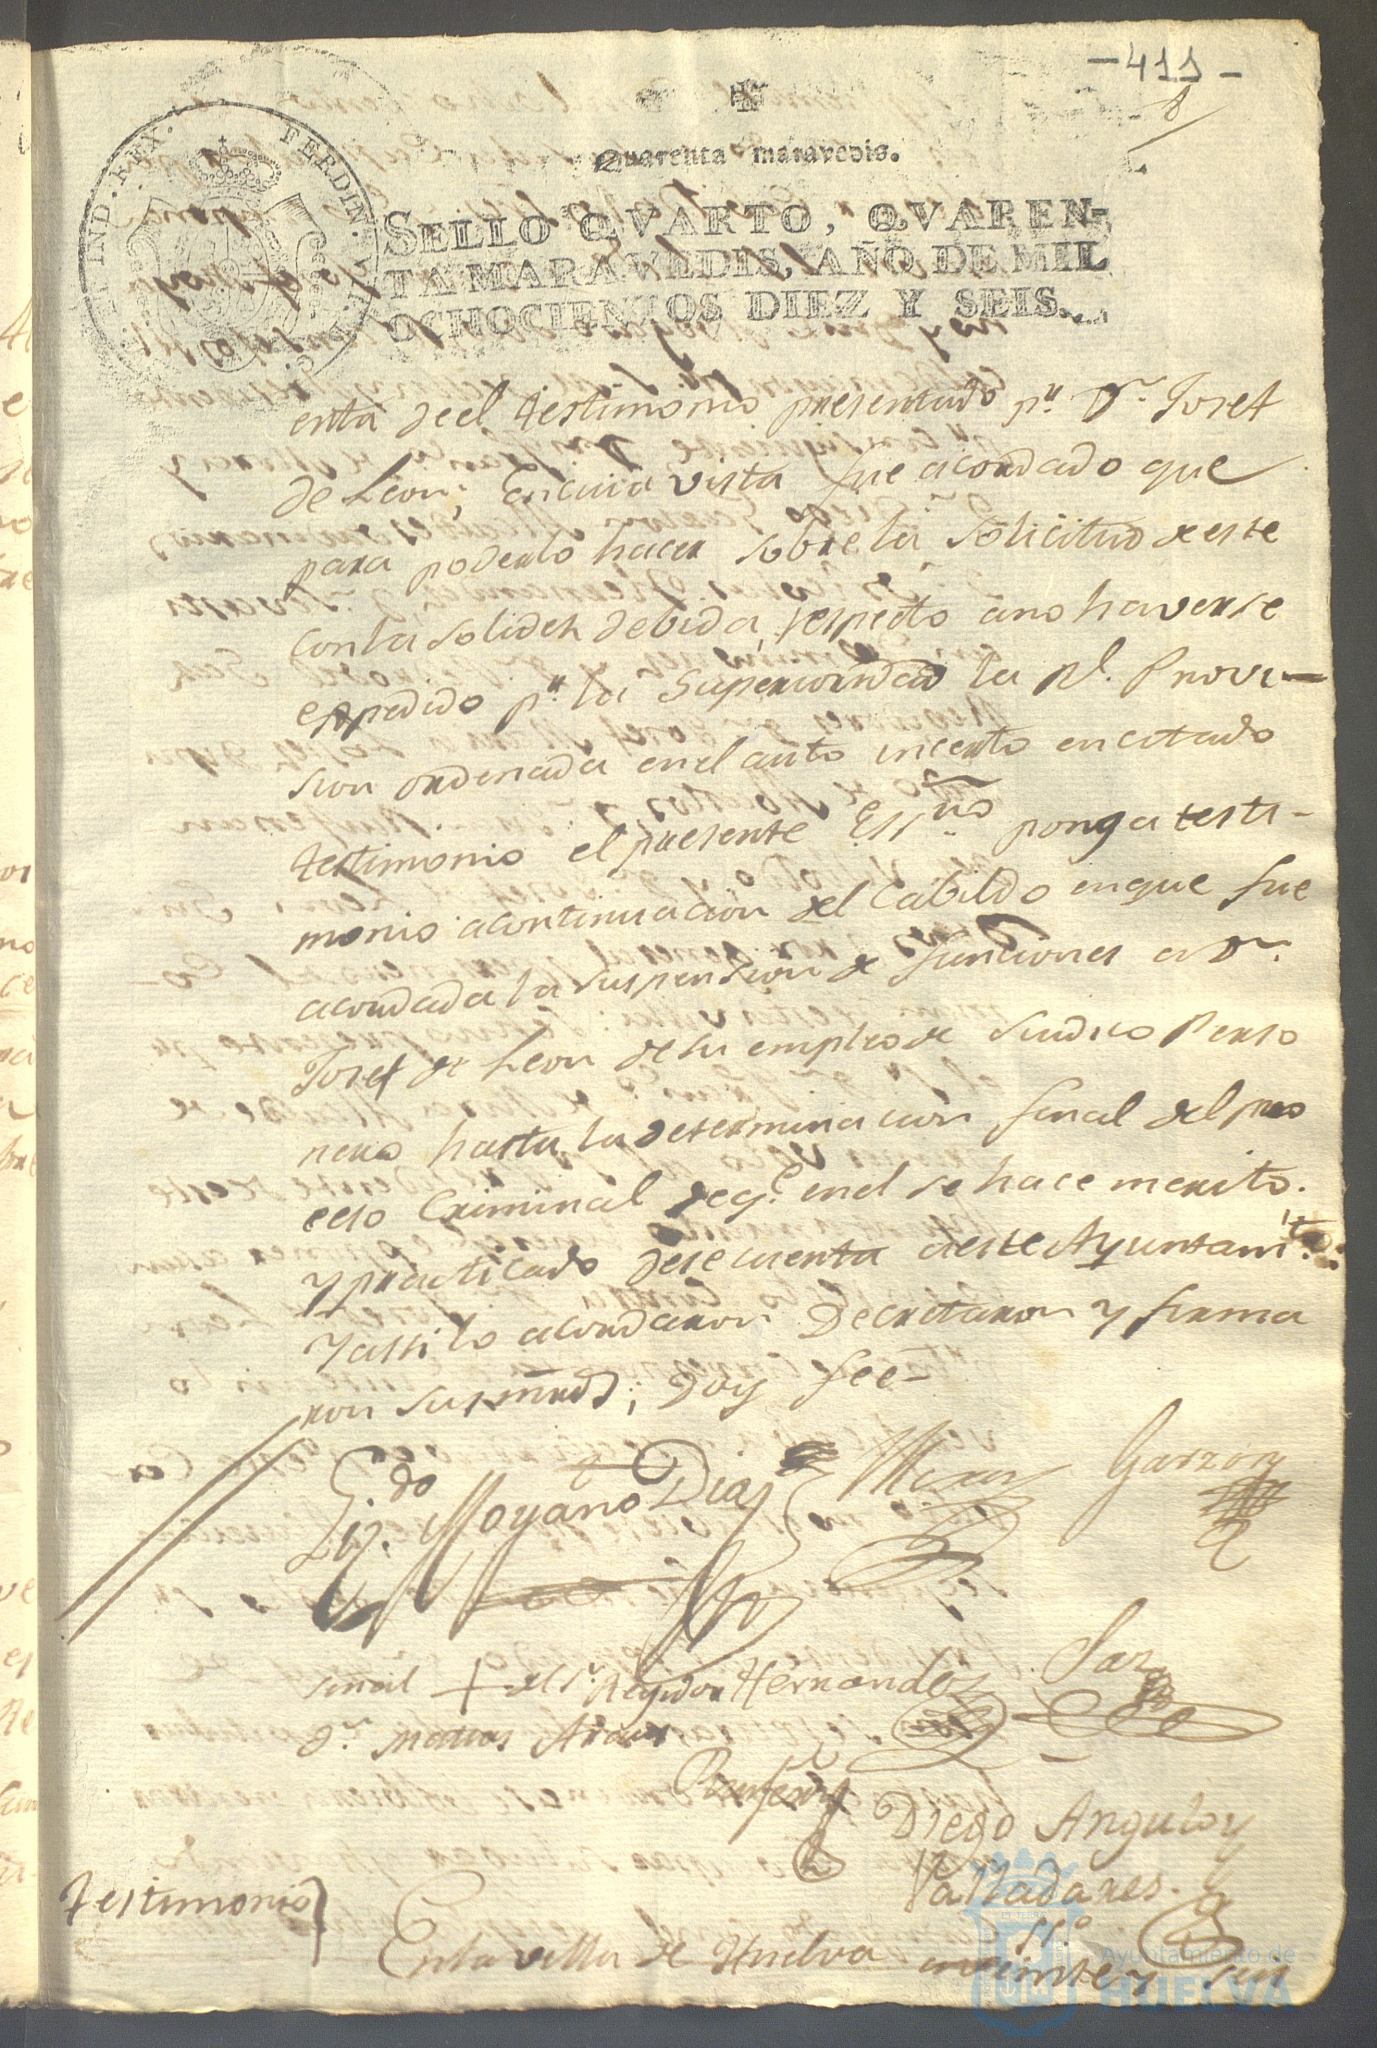 -411-
Quarenta maravedis.
HISPAN. ET IND. REX. FERDIN. VII. D. G.
SELLO QVARTO, QVAREN-
TA MARAVEDIS, AÑO DE MIL
OCHOCIENTOS DIEZ Y SEIS.
enta deel testimonio presentado pr. Dn. Josef
de Leon, encuia vista fue acordado que
para poderlo hacer sobre la solicitud de este
con la solidez debida, respecto ano haverse
expedido pr. la Superioridad la Rl. Provi-
sion ordenada enel auto incerto encitado
testimonio el presente Essno. ponga testi-
monio acontinuacion del Cabildo enque fue
acordada la suspension de funciones a Dn.
Josef de Leon desu empleo de Sindico Perso
nero hasta la determinacion final del pro
ceso Criminal deqe. enel se hace merito.
y practicado dese cuenta aeste Ayuntamto.:
Y assi lo acordaron Decretaron y firma
ron sus mrds; doy fee-
Liz.do Moyano Diaz
Garzon
señal + del Sr. Regidor Hernandez
Dn. Matias
Diego Angulo y
Valladares.
SS.o
Testimonio}
Enla villa de Huelva en veinte y seis
Ayuntamiento de
HUELVA